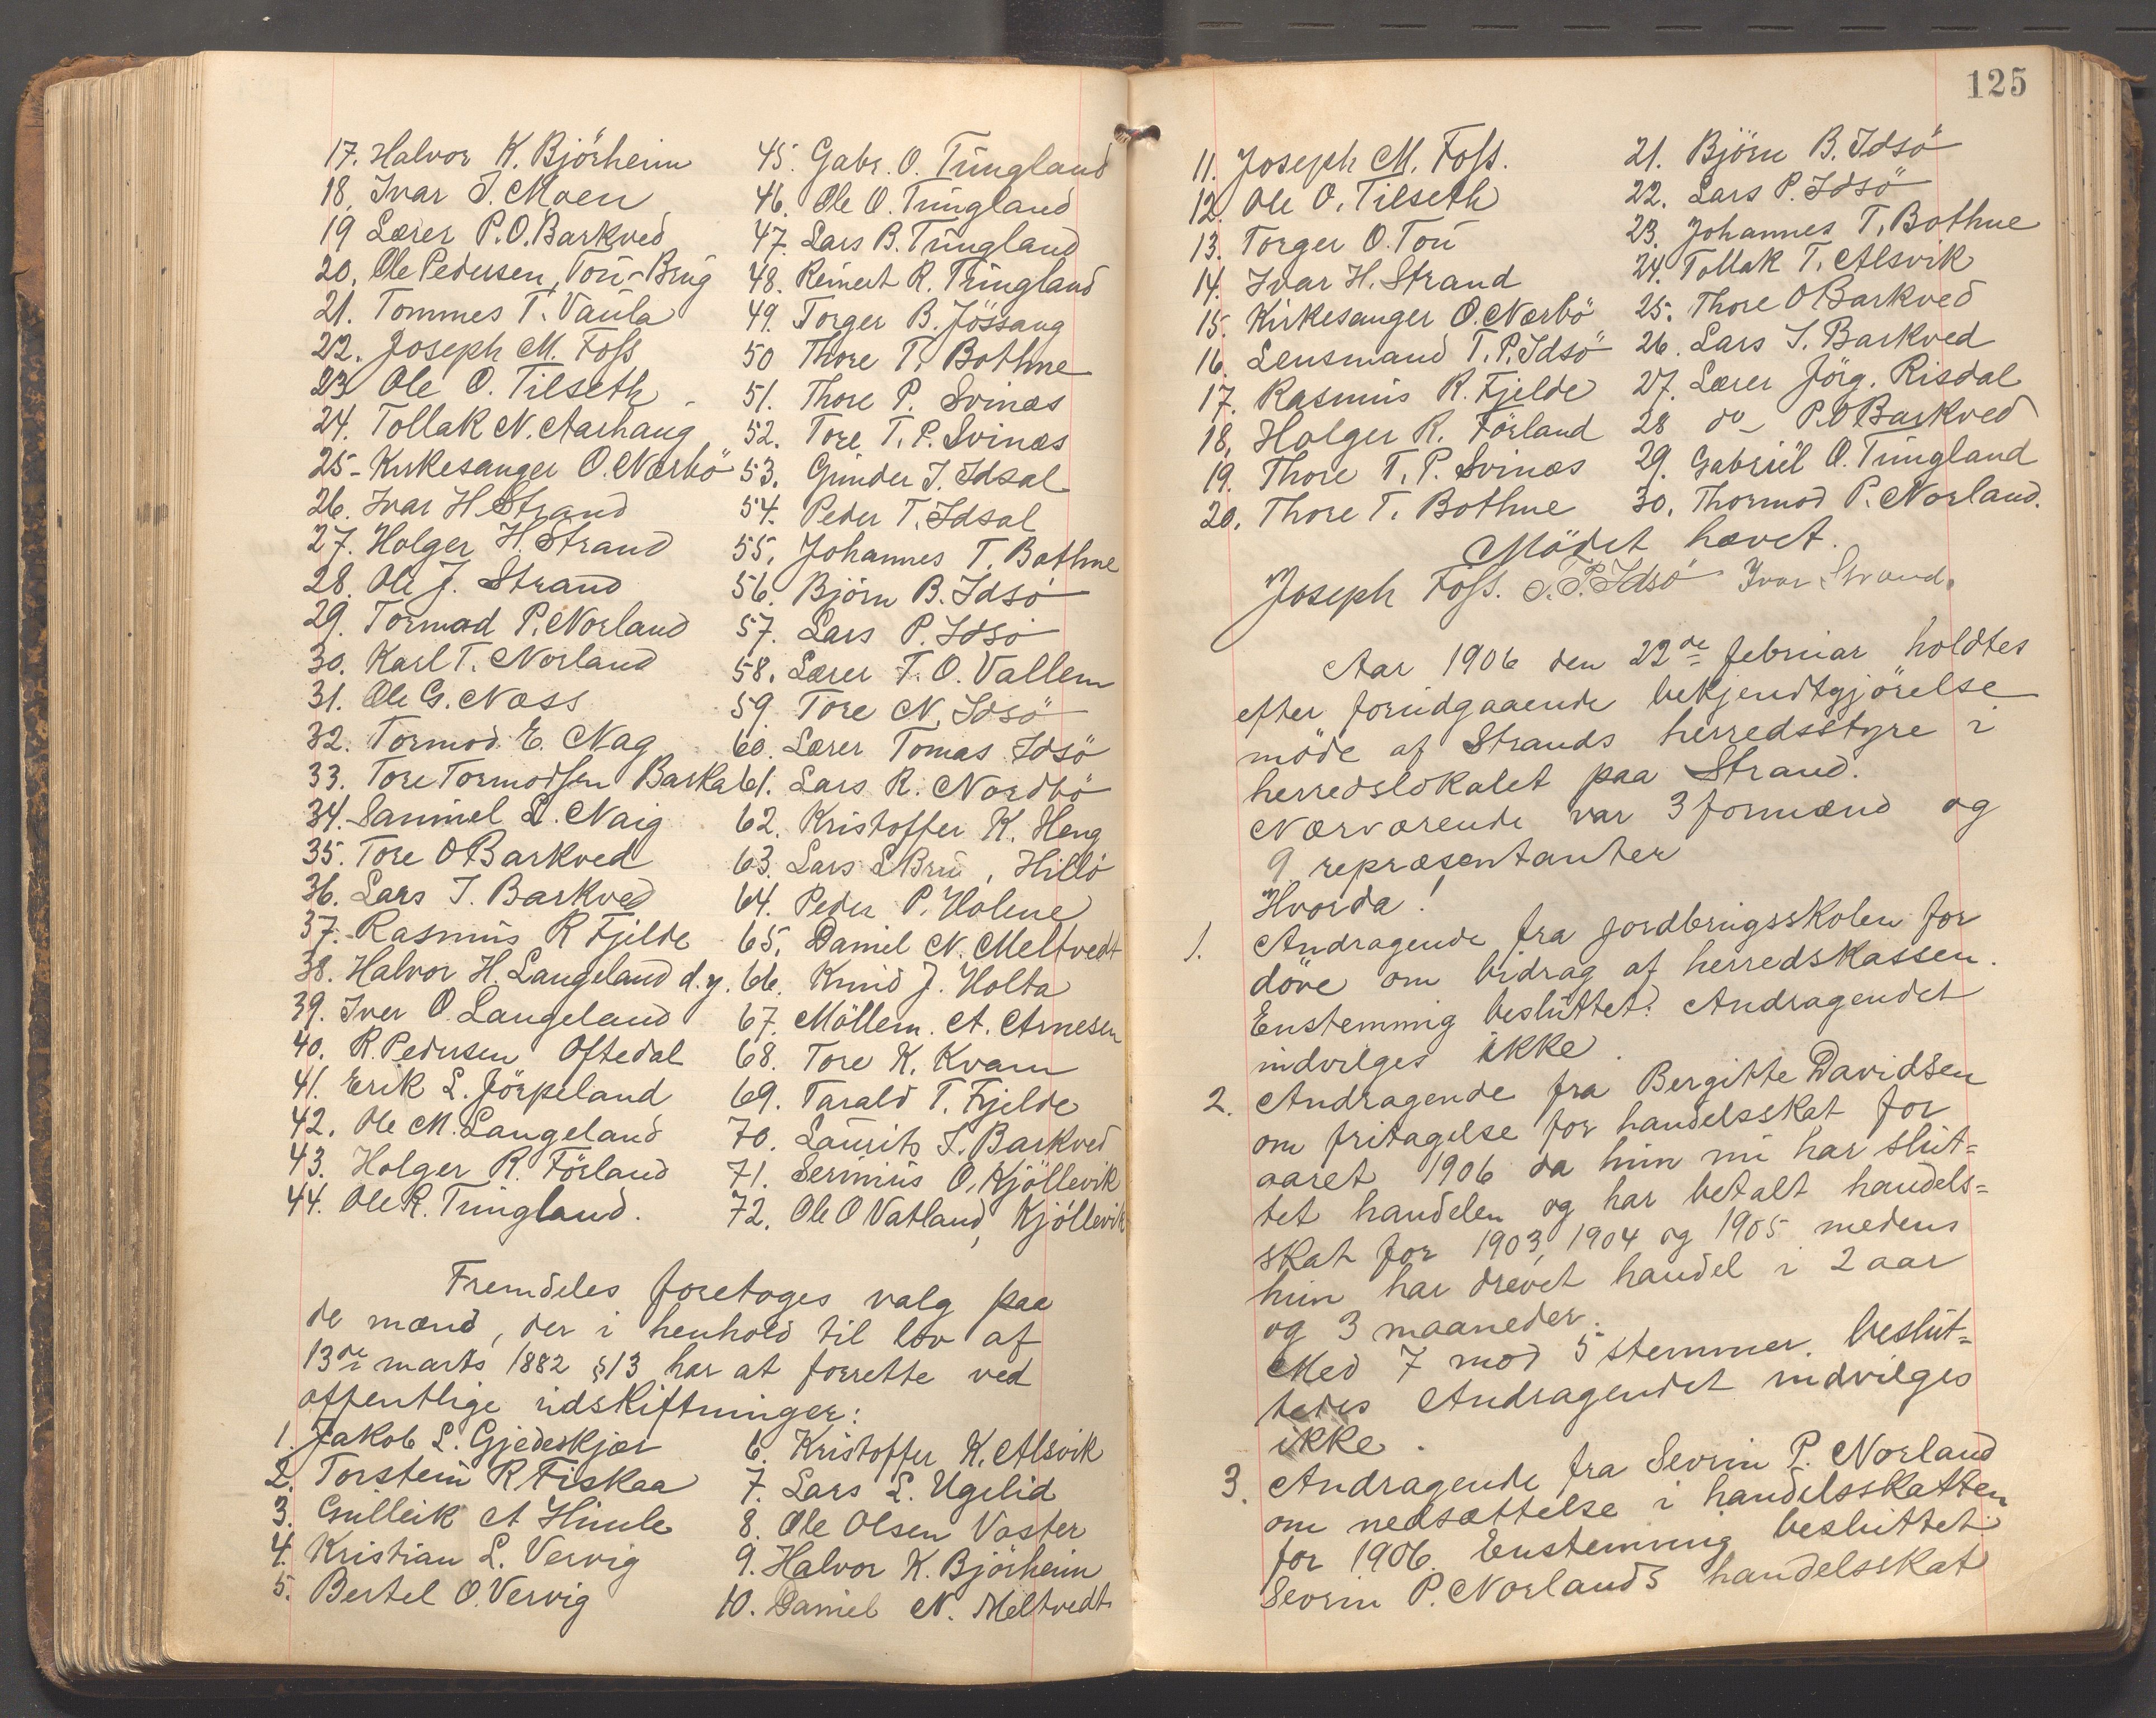 17. Halvor K. Björheim
18. Ivar J. Moen
19 Lærer P. O. Barkved
20. Ole Pedersen, Tou-Brug
21. Tommes T. Vaula
22. Joseph M. Foss
23 Ole O. Tilseth
24. Tollak N. Aarhaug
25- Kirkesanger O. Nærbö
26. Ivar H Strand
27. Holger H. Strand
28. Ole J. Strand
29. Tormod P. Norland
30. Karl T. Norland
31. Ole G. Næss
32. Tormod E. Nag
33. Tore Tormodsen Barka
34. Samuel L. Naig
35. Tore O Barkved
36. Lars T. Barkved
37. Rasmus R Fjelde
38. Halvor H. Langeland d.y.
39. Iver O. Langeland
40. R. Pedersen Oftedal
41. Erik L. Jörpeland
42. Ole M. Langeland
43. Holger R. Förland
44. Ole R. Tungland.
45. Gabr. O. Tungland
46. Ole O. Tungland
47. Lars B. Tungland
48. Reinert R. Tungland
49. Torger B. Jössang
50 Thore T. Bothne
51. Thore P. Svinæs
52. Tore T. P. Svinæs
53. Gunder J. Idsal
54. Peder T. Idsal
55. Johannes T. Bothne
56. Björn B. Idsö
57. Lars P. Idsö
58. Lærer T. O. Vallem
59. Tore N. Idsö
60. Lærer Tomas Idsö
61. Lars R. Nordbö
62. Kristoffer K. Heng
63. Lars L Bru, Hillö
64. Peder P. Holene
65. Daniel N. Meltvedt
66. Knud J. Holta
67. Möllem. A. Arnesen
68. Tore K. Kvam
69. Tarald T. Fjelde
70. Laurits L. Barkved
71. Serinius O. Kjöllevik
72. Ole O Vatland, Kjöllevik
Fremdeles foretoges valg paa
de mænd, der i henhold til lov af
13de marts 1882 § 13 har at forrette ved
offentlige udskiftninger:
1. Jakob L. Gjedeskjær
2. Torstein R Fiskaa
3. Gulleik A Himle
4. Kristian L. Vervig
5. Bertel O. Vervig
6. Kristoffer K. Alsvik
7. Lars L. Ugelid
8. Ole Olsen Vaster
9. Halvor K. Björheim
10. Daniel N. Meltvedt
125
11. Joseph M. Foss.
12. Ole O. Tilseth
13. Torger O. Tou
14. Ivar H. Strand
15. Kirkesanger O. Nærbö
16. Lensmand T. P. Idsö
17. Rasmus R. Fjelde
18. Holger R. Förland
19. Thore T. P. Svinæs
20. Thore T. Bothne
21. Björn B. Idsö
22. Lars P. Idsö
23. Johannes T. Bothne
24. Tollak T. Alsvik
25. Thore O Barkved
26. Lars T. Barkved
27. Lærer Jörg. Risdal
28 do - P. O Barkved
29. Gabriel O. Tungland
30. Thormod P. Norland.
Mödet hævet.
Joseph Foss. T. P. Idsö Ivar Strand.
Aar 1906 den 22de februar holdtes
efter forudgaaende bekjendtgjörelse
möde af Strands herredsstyre i
herredslokalet paa Strand.
Nærværende var 3 formænd og
9 repræsentanter
Hvorda!
1. Andragende fra jordbrugsskolen for
döve om bidrag af herredskassen.
Enstemmig besluttet: Andragendet
indvilges ikke.
2. Andragende fra Bergitte Davidsen
om fritagelse for handelsskat for
aaret 1906 da hun nu har slut=
tet handelen og har betalt handels=
skat for 1903, 1904 og 1905 medens
hun har drevet handel i 2 aar
og 3 maaneder.
Med 7 mod 5 stemmer. beslut=
tedes Andragendet indvilges
ikke.
3. Andragende fra Sevrin P. Norland
om nedsættelse i handelsskatten
for 1906. Enstemmig besluttet
Sevrin P. Norlands handelsskat